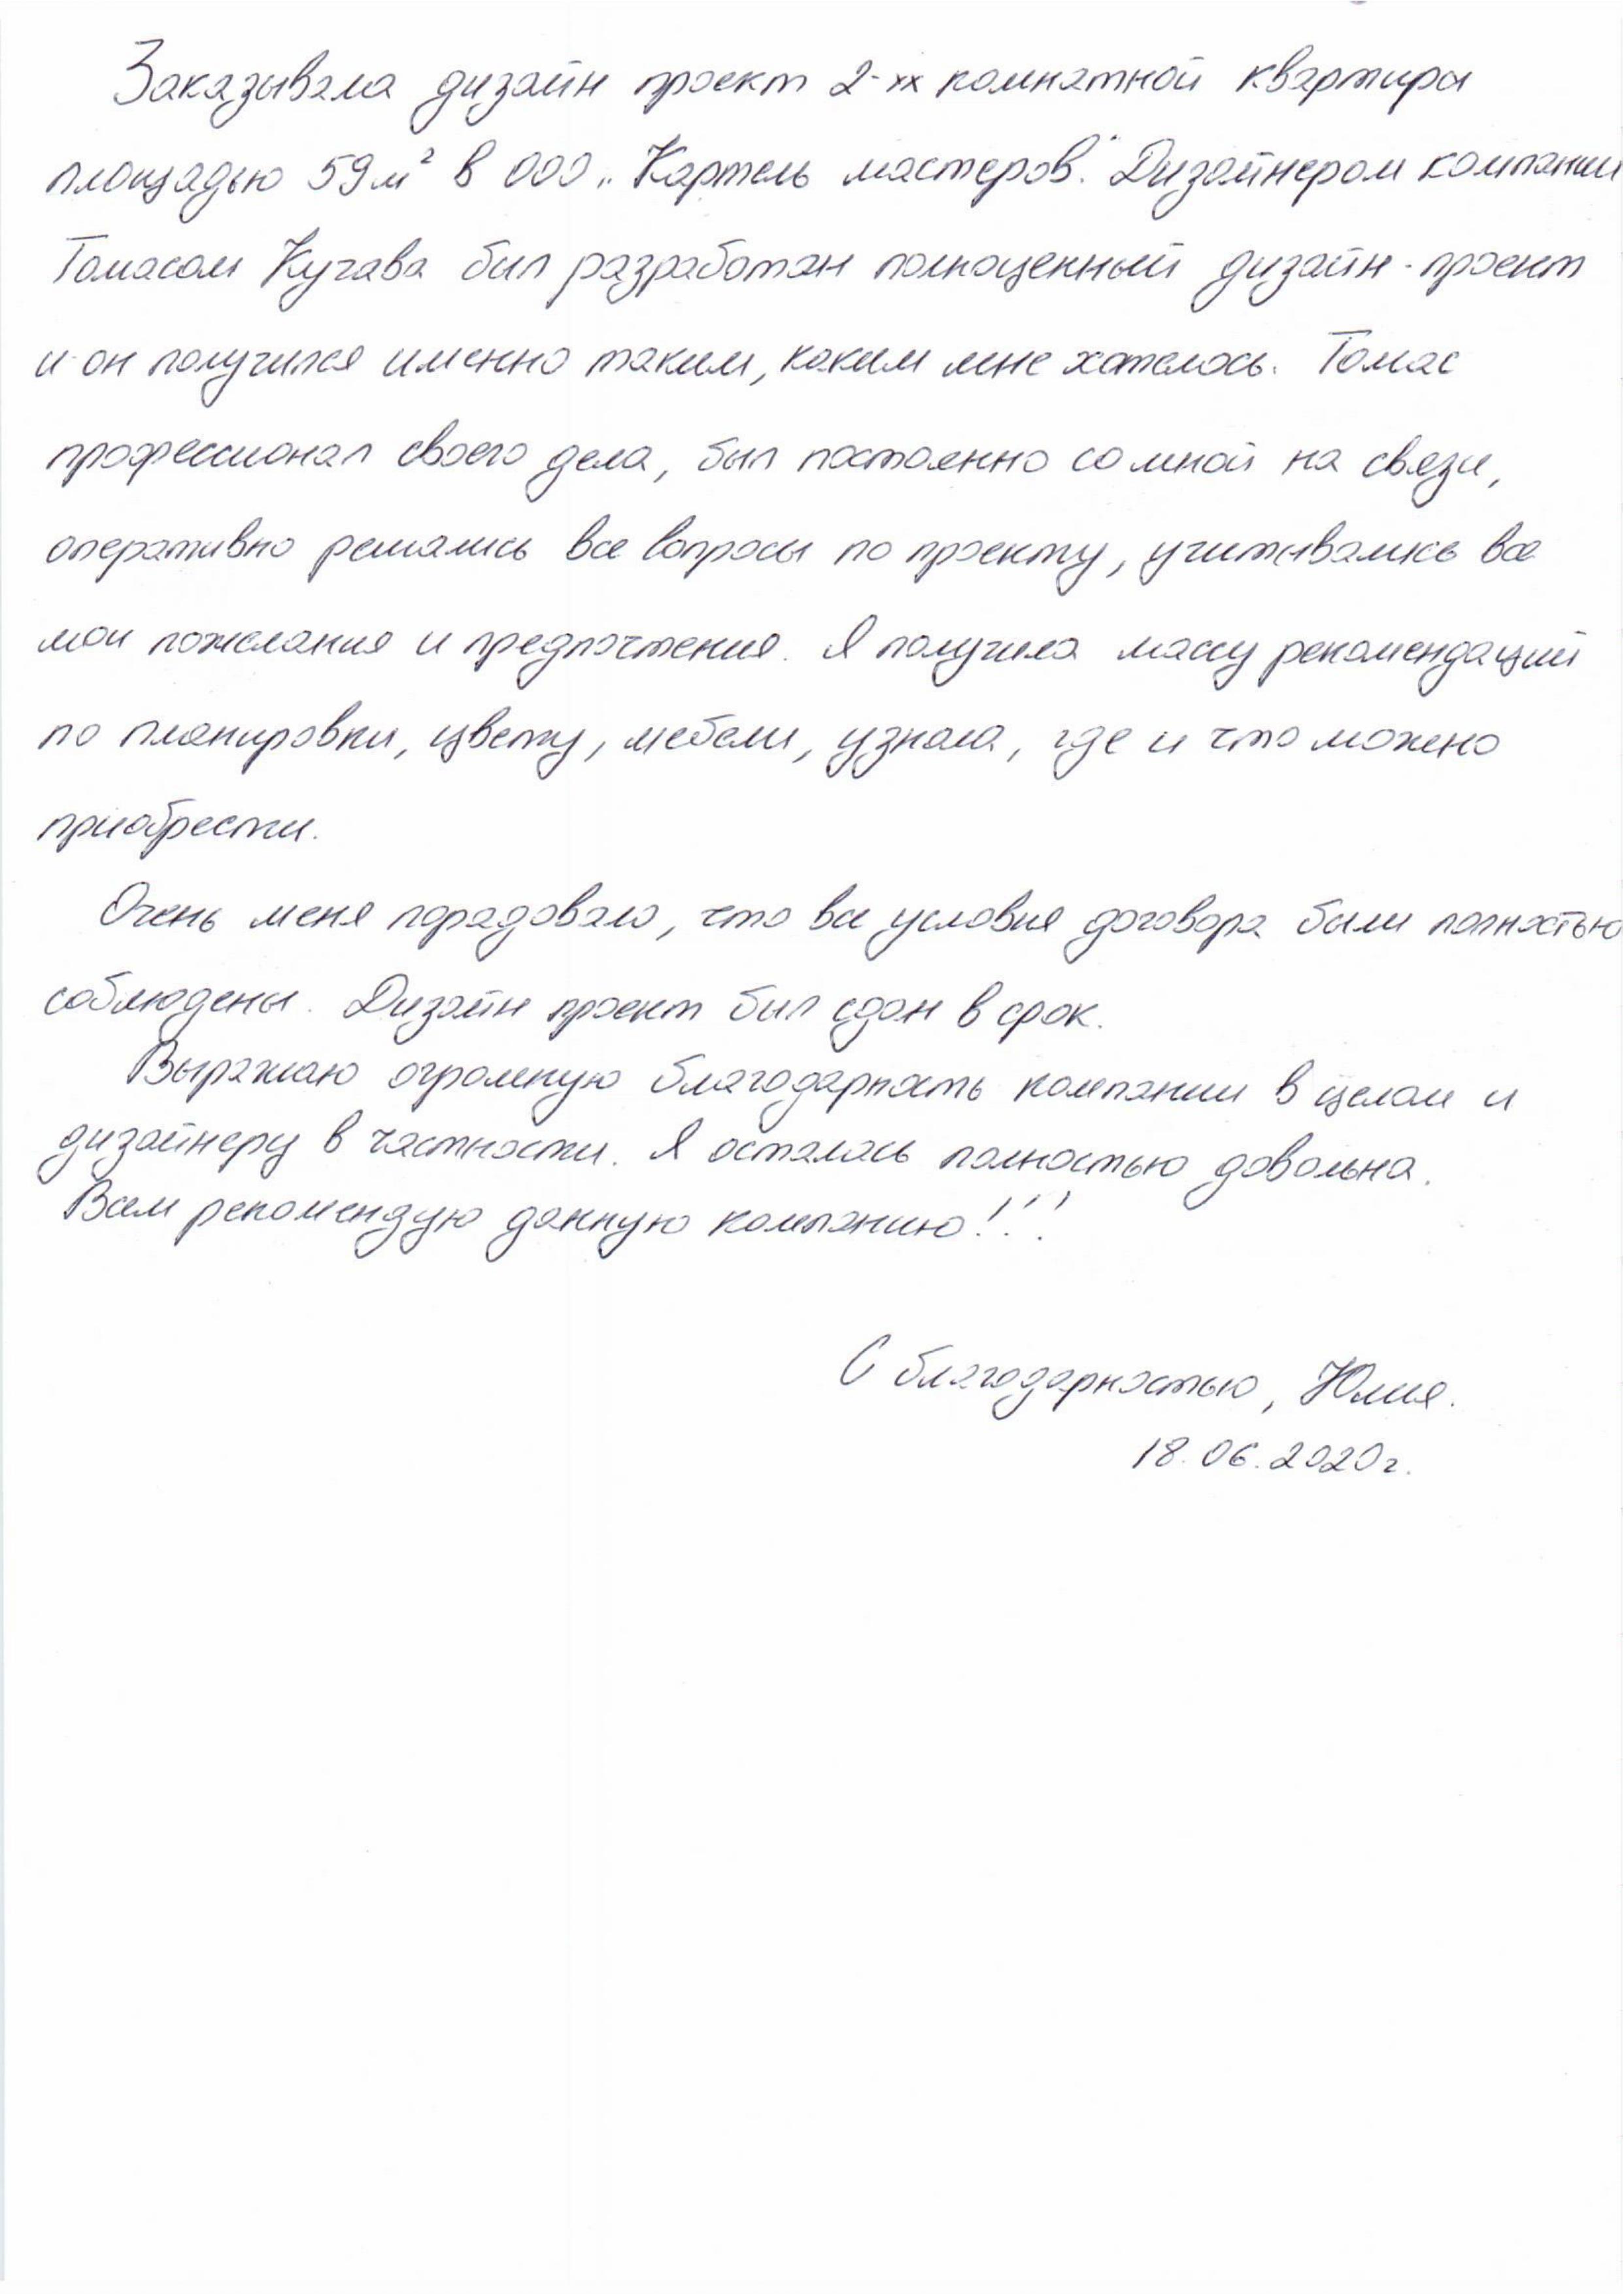 Заказывала дизайн проект 2-хх комнатной квартиры
площадью 59 м² в ООО „Картель мастеров". Дизайнером компании
Томасом Кучава был разработан полноценный дизайн-проект
и он получился именно таким, каким мне хотелось. Томас
профессионал своего дела, был постоянно со мной на связи,
оперативно решались все вопросы по проекту, учитывались все
мои пожелания и предпочтения. Я получила массу рекомендаций
по планировки, цвету, мебели, узнала, где и что можно
приобрести.
Очень меня порадовало, что все условия договора были полностью
соблюдены. Дизайн проект был сдан в срок.
Выражаю огромную благодарность компании в целом и
дизайнеру в частности. Я осталась полностью довольна.
Всем рекомендую данную компанию!!!
С благодарностью, Юлия.
18.06.2020г.